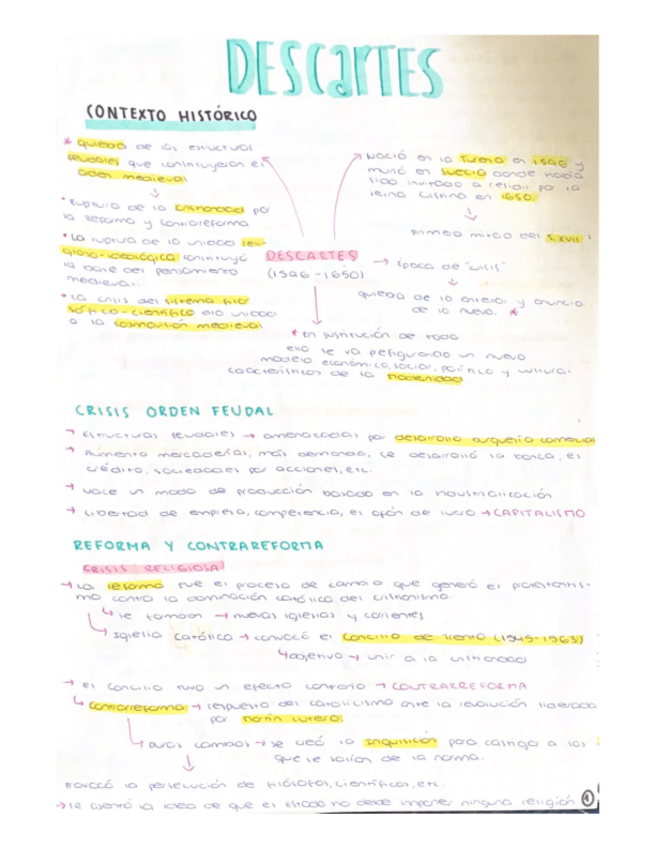 DESCARTES
CONTEXTO HISTÓRICO
* quiebra de las estructuras
feudales que constituyeron el
orden medieval
* ruptura de la cristiandad por
la reforma y contrareforma
* La ruptura de la unidad reli-
gioso-ideológica constituyó
la base del pensamiento
medieval.
* La crisis del sistema filo
sófico-científico dio unidad
a la cosmovisión medieval
Nació en la Turena en 1596 y
murió en Suecia donde había
sido invitado a residir por la
reina Cristina en 1650.
primera mitad del S.XVII
DESCARTES
(1596-1650)
→ época de "crisis"
quiebra de lo anterior y anuncio
de lo nuevo. *
* En sustitución de todo
ello se va perfigurando un nuevo
modelo económico, social, político y cultural
característicos de la modernidad.
CRISIS ORDEN FEUDAL
→ Estructuras feudales → amenazadas por desarrollo burguesía comercial
→ Aumento mercaderías, más demanda, se desarrolló la banca, el
crédito, sociedades por acciones, etc.
→ nace un modo de producción basado en la industrialización
→ Libertad de empresa, competencia, el afán de lucro → CAPITALISMO
REFORMA Y CONTRAREFORMA
CRISIS RELIGIOSA
→ La reforma fue el proceso de cambio que generó el protestantis-
mo contra la dominación católica del cristianismo.
se forman → nuevas iglesias y corrientes
Iglesia Católica → convocó el Concilio de Trento (1545-1563)
objetivo → unir a la cristiandad
→ el concilio tuvo un efecto contrario → CONTRARREFORMA
Contrarreforma → respuesta del catolicismo ante la revolución liderada
por Martín Lutero.
duros cambios → se creó la Inquisición para castigar a los
que se salían de la norma.
Provocó la persecución de filósofos, científicos, etc.
→ se asentó la idea de que el Estado no debe imponer ninguna religión 1